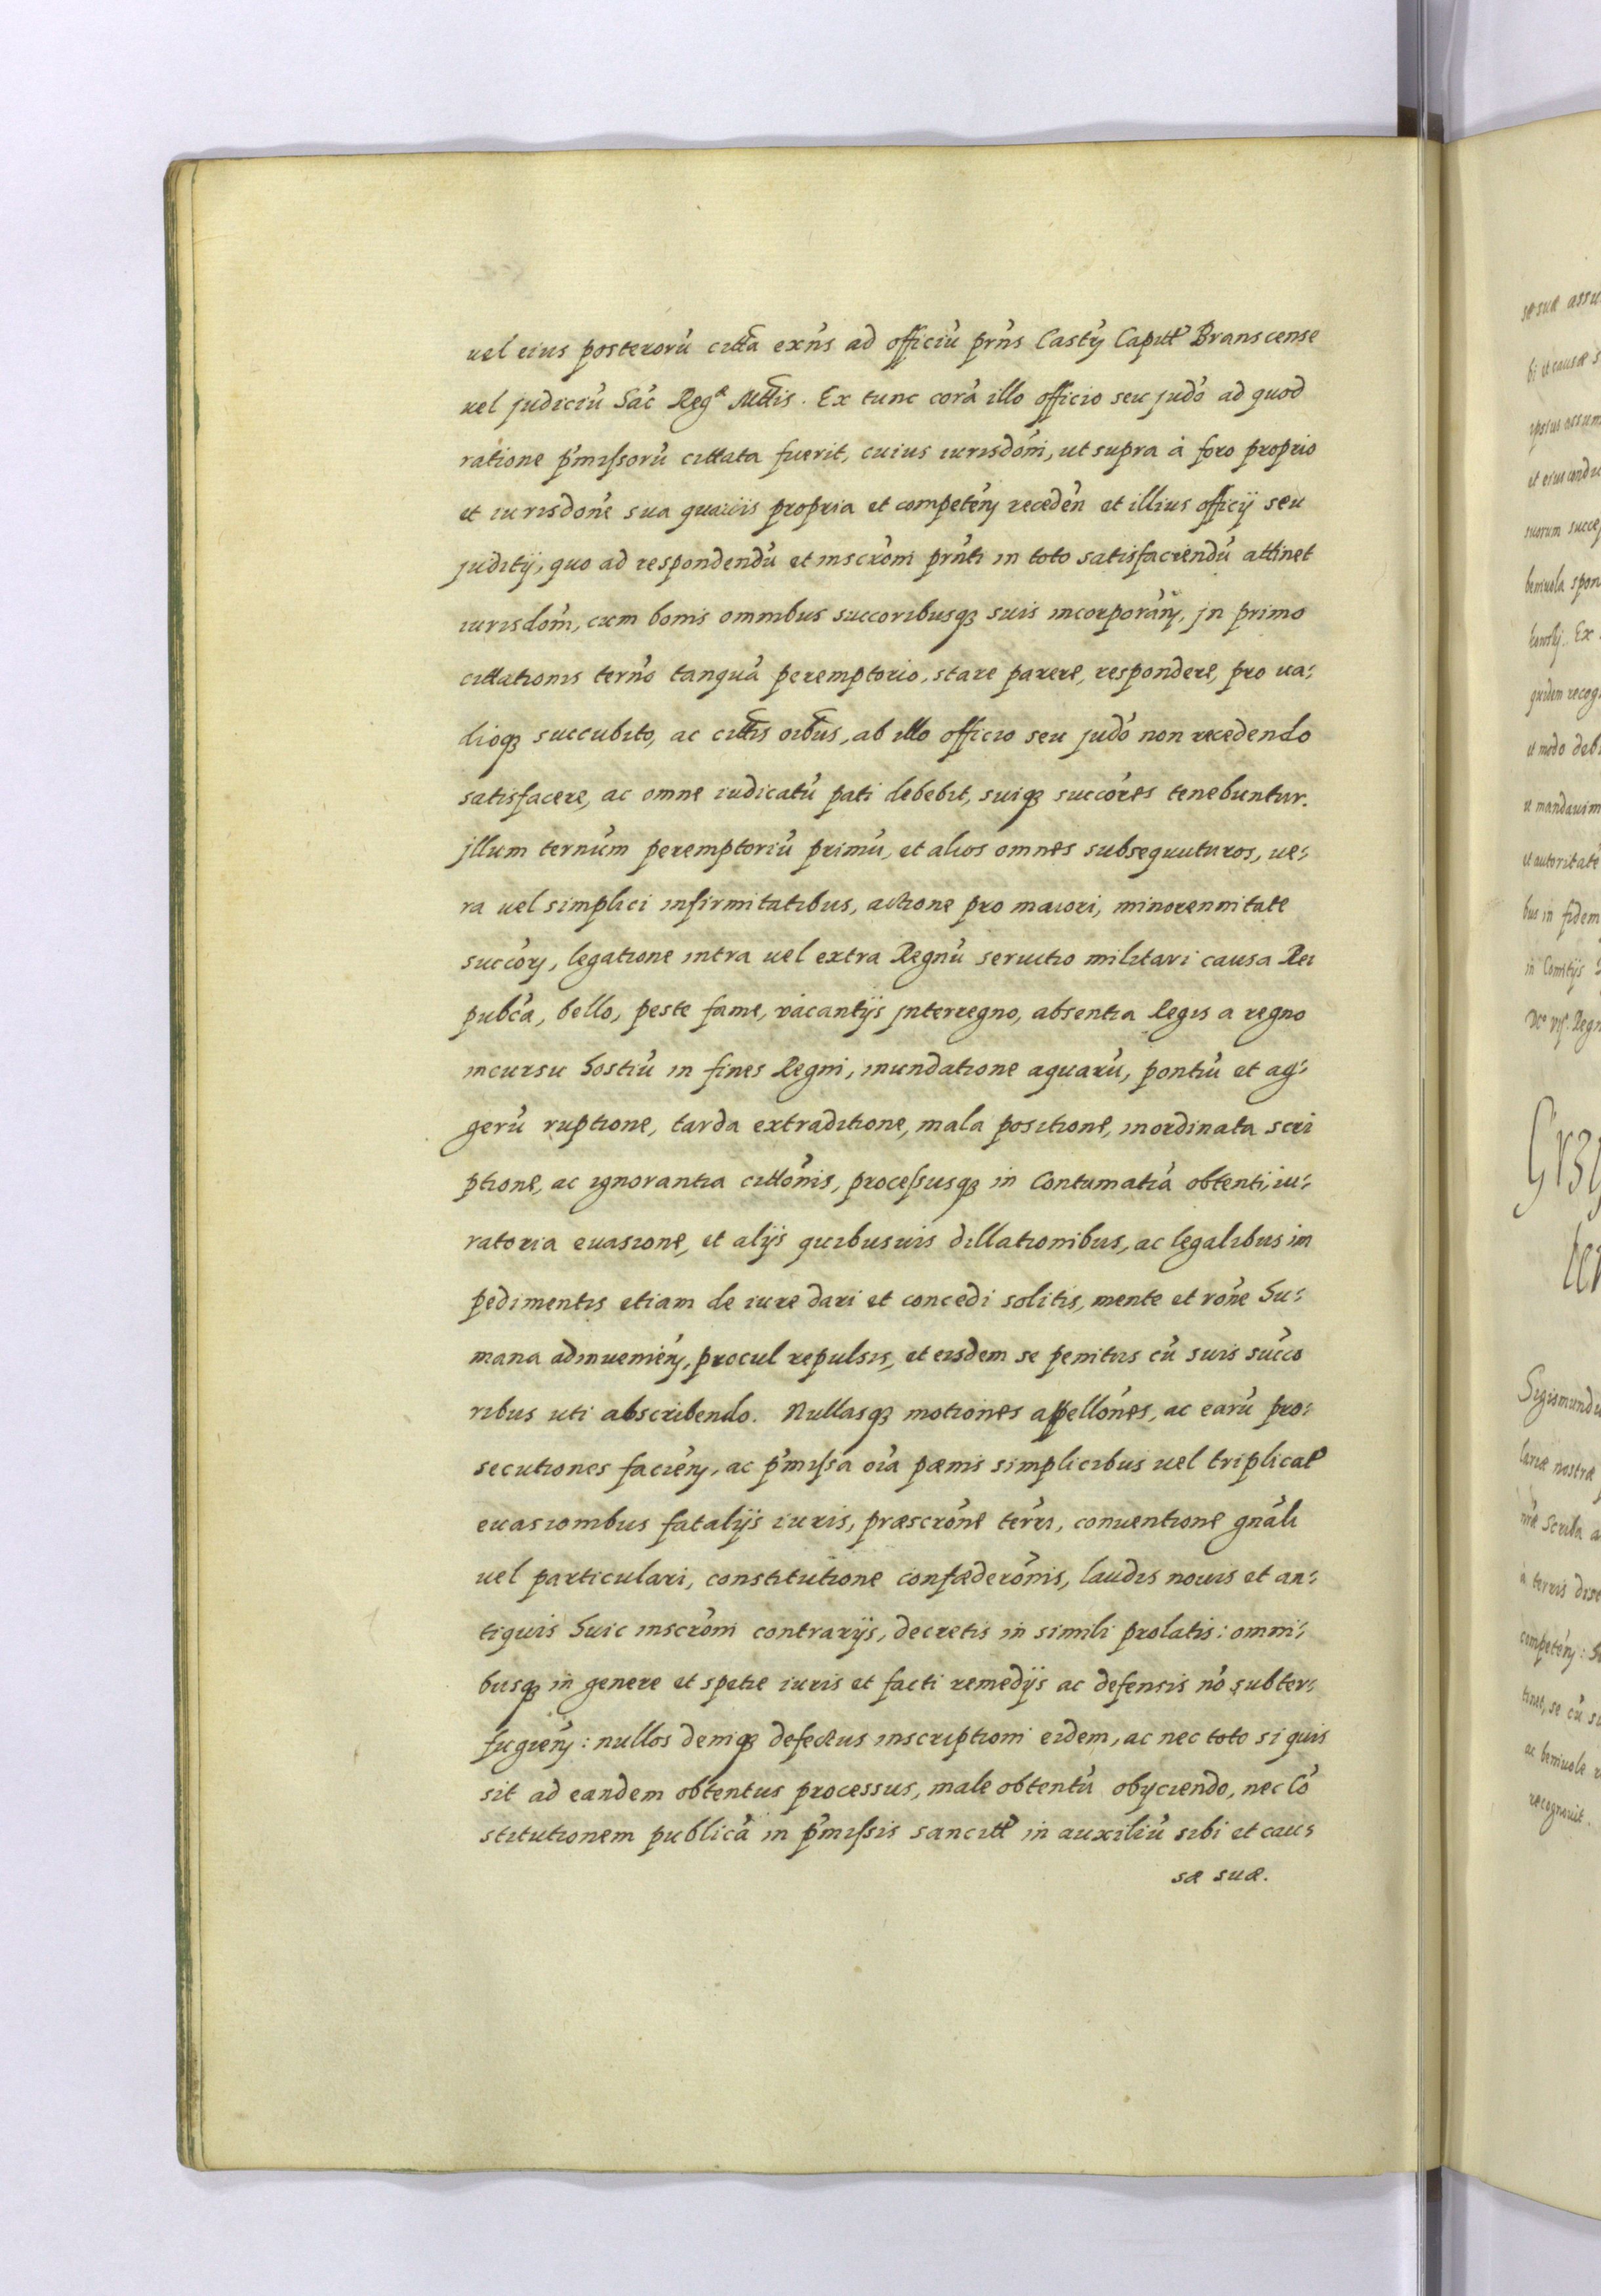 uel eius posterorū citta exn̄s ad officiū prn̄s Castrj Capitt Branscense
uel judiciū Sac̄ Regᵉ Mttis. Ex tunc corā illo officio seu judo ad quod
ratione p̄missorū cittata fuerit, cuius iurisdom̄, ut supra à foro proprio
et iurisdon̄e sua quauis propria et competēnj receden̄ et illius officij seu
juditij, quo ad respondendū et inscrōni prn̄ti in toto satisfaciendū attinet
iurisdom̄, cum bonis omnibus succoribusqꝫ suis incorporānj, jn primo
cittationis tern̄o tanquā peremptorio, stare parere, respondere, pro ua⸗
dioqꝫ succubito, ac cittis oibus, ab illo officio seu judo non recedendo
satisfacere, ac omne iudicatū pati debebit, suiqꝫ succōres tenebuntur.
jllum tern̄um peremptoriū primū, et alios omnes subsequuturos, ue⸗
ra uel simplici infirmitatibus, actione pro maiori, minorennitate
succōrj, legatione intra uel extra Regnū seruitio militari causa Rei
pubca, bello, peste fame, vacantijs jnterregno, absentia Regis a regno
incursu hostiū in fines Regni, inundatione aquarū, pontiū et ag⸗
gerū ruptione, tarda extraditione, mala positione, inordinata scri
ptione, ac ignorantia cittōnis, processusqꝫ in Contumatiā obtenti, iu⸗
ratoria euasione, et alijs quibusuis dillationibus, ac legalibus im
pedimentis etiam de iure dari et concedi solitis, mente et rōne hu⸗
mana adinueniēnj, procul repulsis, et eisdem se penitus cū suis succo
ribus uti abscribendo. Nullasqꝫ motiones appellōnes, ac earū pro⸗
secutiones faciēnj, ac p̄missa oīa pænis simplicibus uel triplicat
euasionibus fatalijs iuris, præscrōne terrī, conuentione gnāli
uel particulari, constitutione confæderōnis, laudis nouis et an⸗
tiquis huic inscrōni contrarijs, decretis in simili prolatis: omni⸗
busqꝫ in genere et spetie iuris et facti remedijs ac defensis nō subter⸗
fugiēnj: nullos deniqꝫ defectus inscriptioni eidem, ac nec toto si quis
sit ad eandem obtentus processus, male obtentū obijciendo, nec Cō
stitutionem publicā in p̄missis sancitt in auxiliū sibi et cau⸗
sæ suæ.